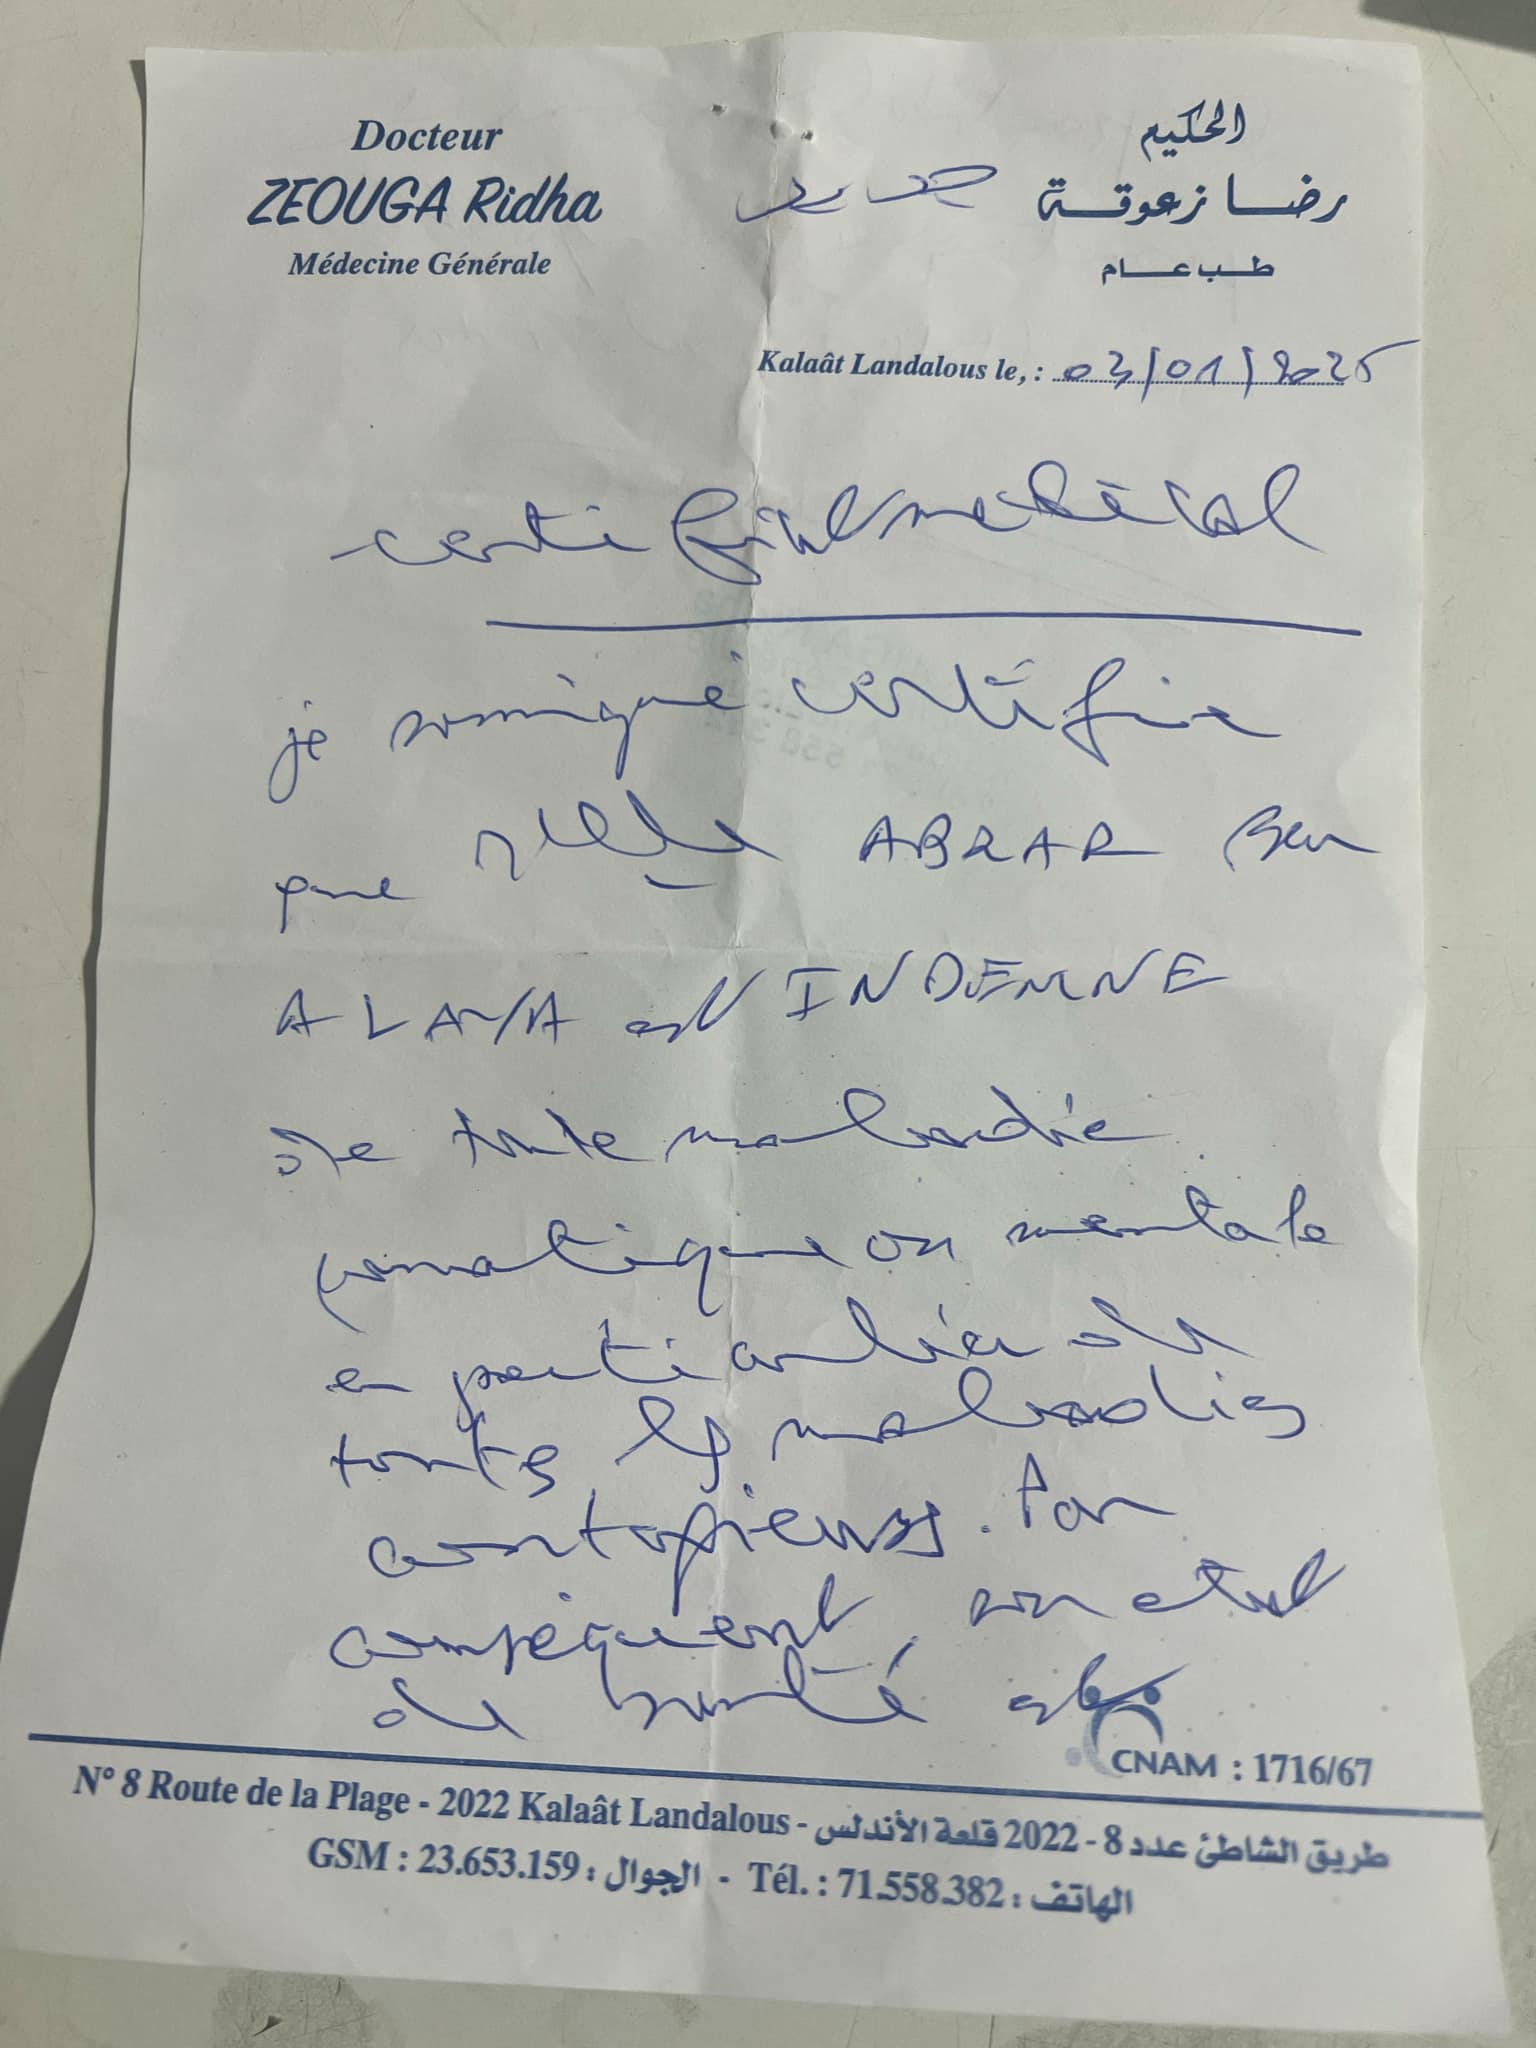 Docteur
ZEOUGA Ridha
Médecine Générale
الحكيم
رضا زعوقة
طب عام
Kalaât Landalous le, : 03/01/2025
certificat médical
je soussigné certifie
que Melle ABRAR Ben
ALAYA est INDEMNE
de toute maladie
somatique ou mentale
en particulier de
toutes les maladies
contagieuses. Par
conséquent, son état
de santé est
CNAM : 1716/67
N° 8 Route de la Plage - 2022 Kalaât Landalous - طريق الشاطئ عدد 8 - 2022 قلعة الأندلس
GSM : 23.653.159 : الجوال - Tél. : 71.558.382 : الهاتف